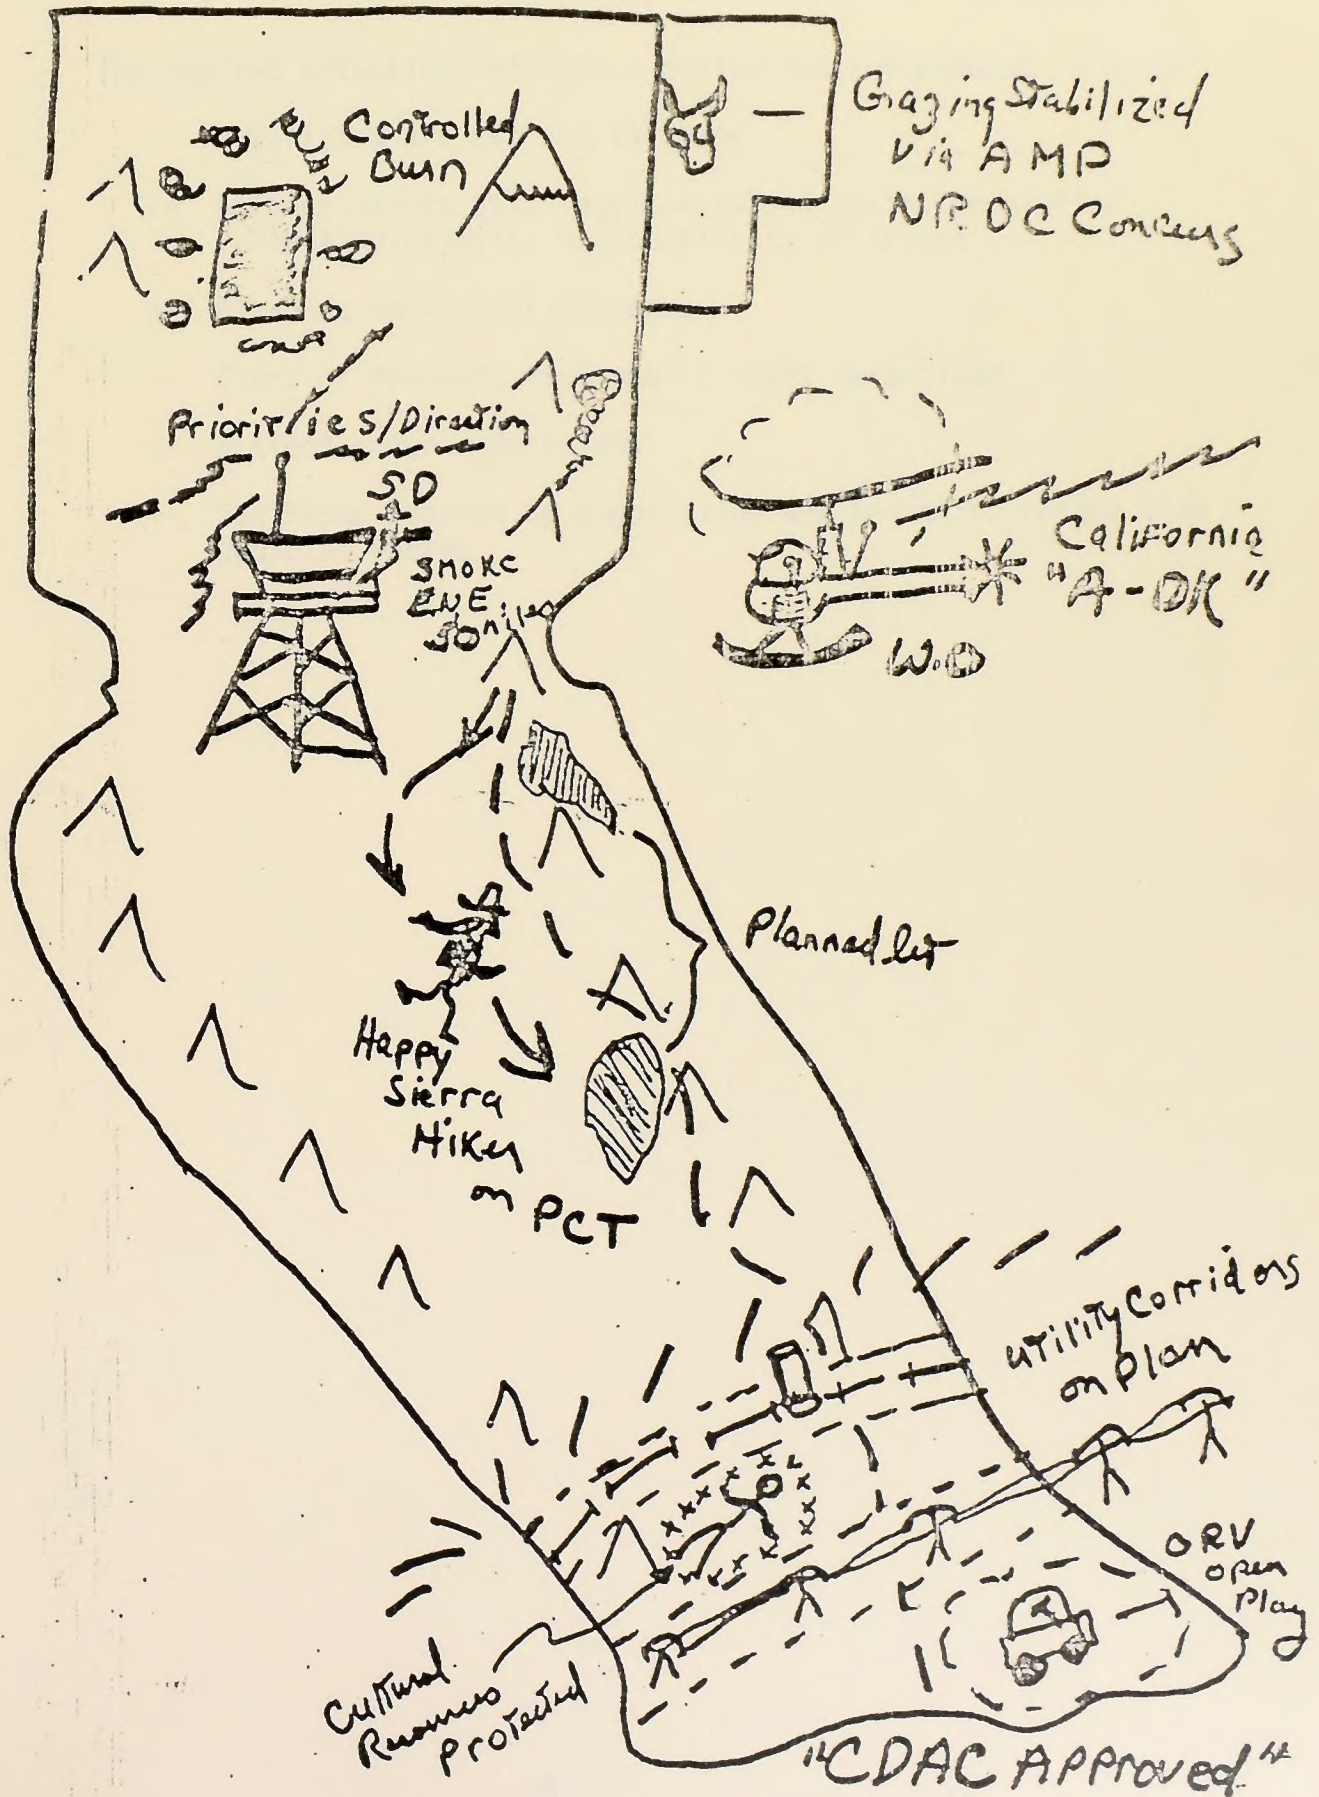 Controlled
Burn
Grazing Stabilized
Via AMP
NRDC Concurs
Priorities/Direction
SD
SMOKE
ENE
50 miles
California
"A-OK"
W.O
Planned
Happy
Sierra
Hiker
on PCT
Utility Corridors
on Plan
ORV
Open
Play
Cultural
Resources
Protected
"CDAC Approved"